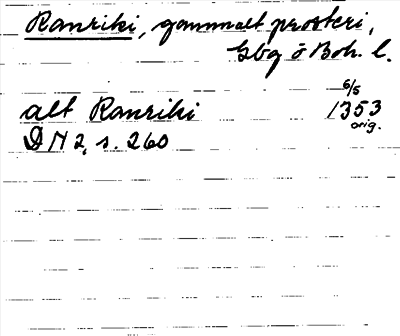 Ranriki, gammalt prosteri,
Gbg o Boh. l.
6/5
alt Ranriki 1353
orig.
DN 2, s. 260